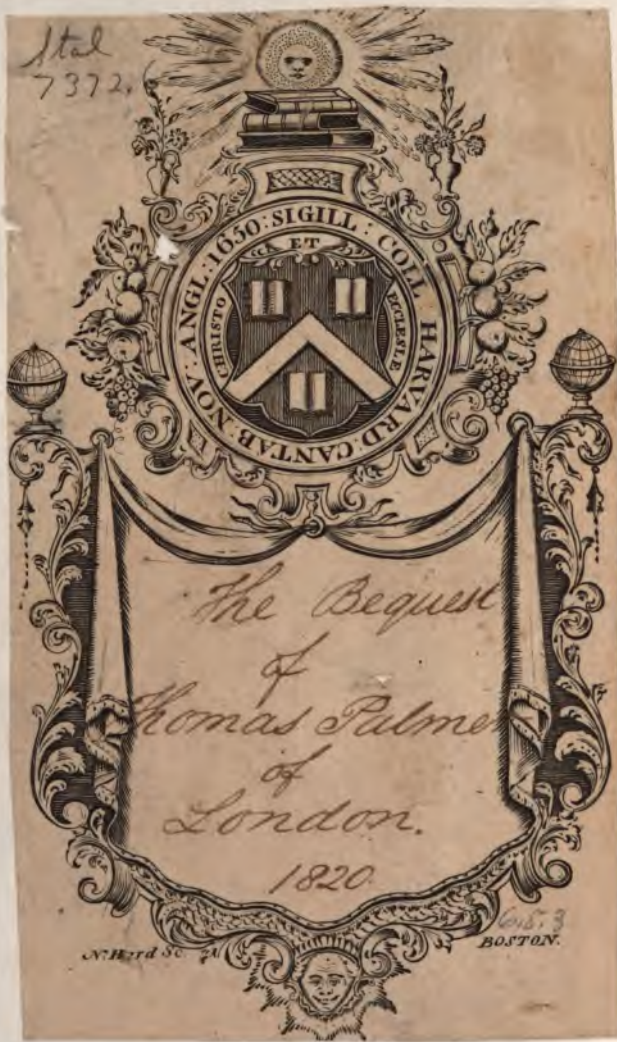 Ital
7372.
SIGILL : COLL HARVARD : CANTAB : NOV : ANGL : 1650 :
CHRISTO ET ECCLESLÆ
The Bequest
of
Thomas Palmer
of
London.
1820.
N. Hurd Sc.
BOSTON.